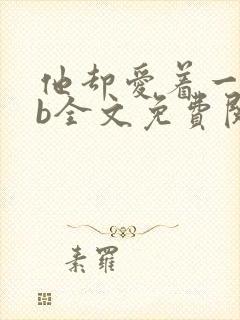 他却爱着一
b全文免費閱
素羅